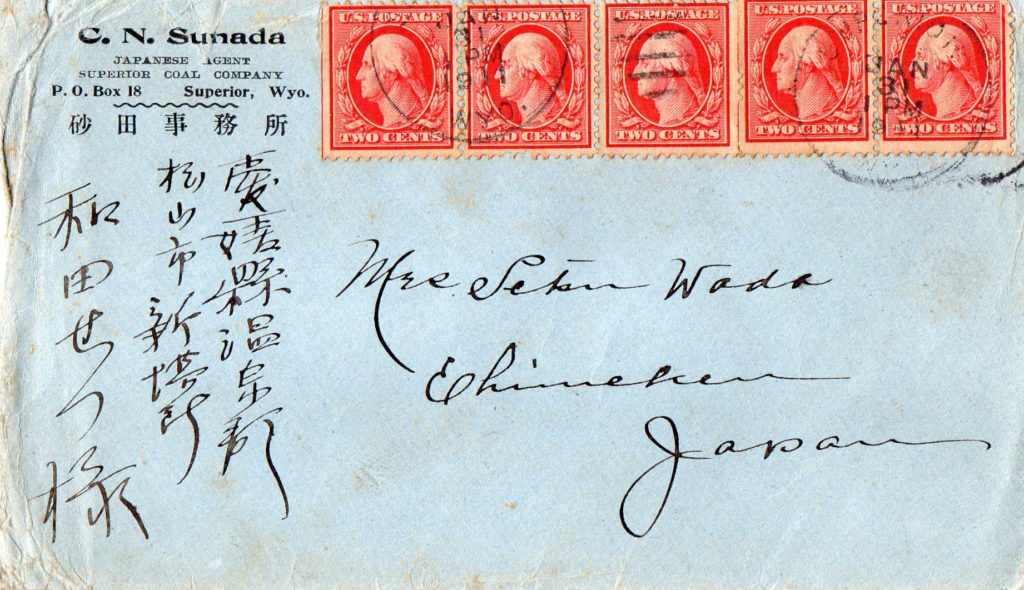 C. N. Sunada
JAPANESE AGENT
SUPERIOR COAL COMPANY
P. O. Box 18 Superior, Wyo.
砂田事務所
U.S. POSTAGE
TWO CENTS
U.S. POSTAGE
TWO CENTS
U.S. POSTAGE
TWO CENTS
U.S. POSTAGE
TWO CENTS
U.S. POSTAGE
TWO CENTS
JAN
31
PM
1911
WYO.
JAN
31
1 PM
愛媛縣温泉郡
松山市新場所
和田せつ様
Mrs. Setsu Wada
Ehimeken
Japan